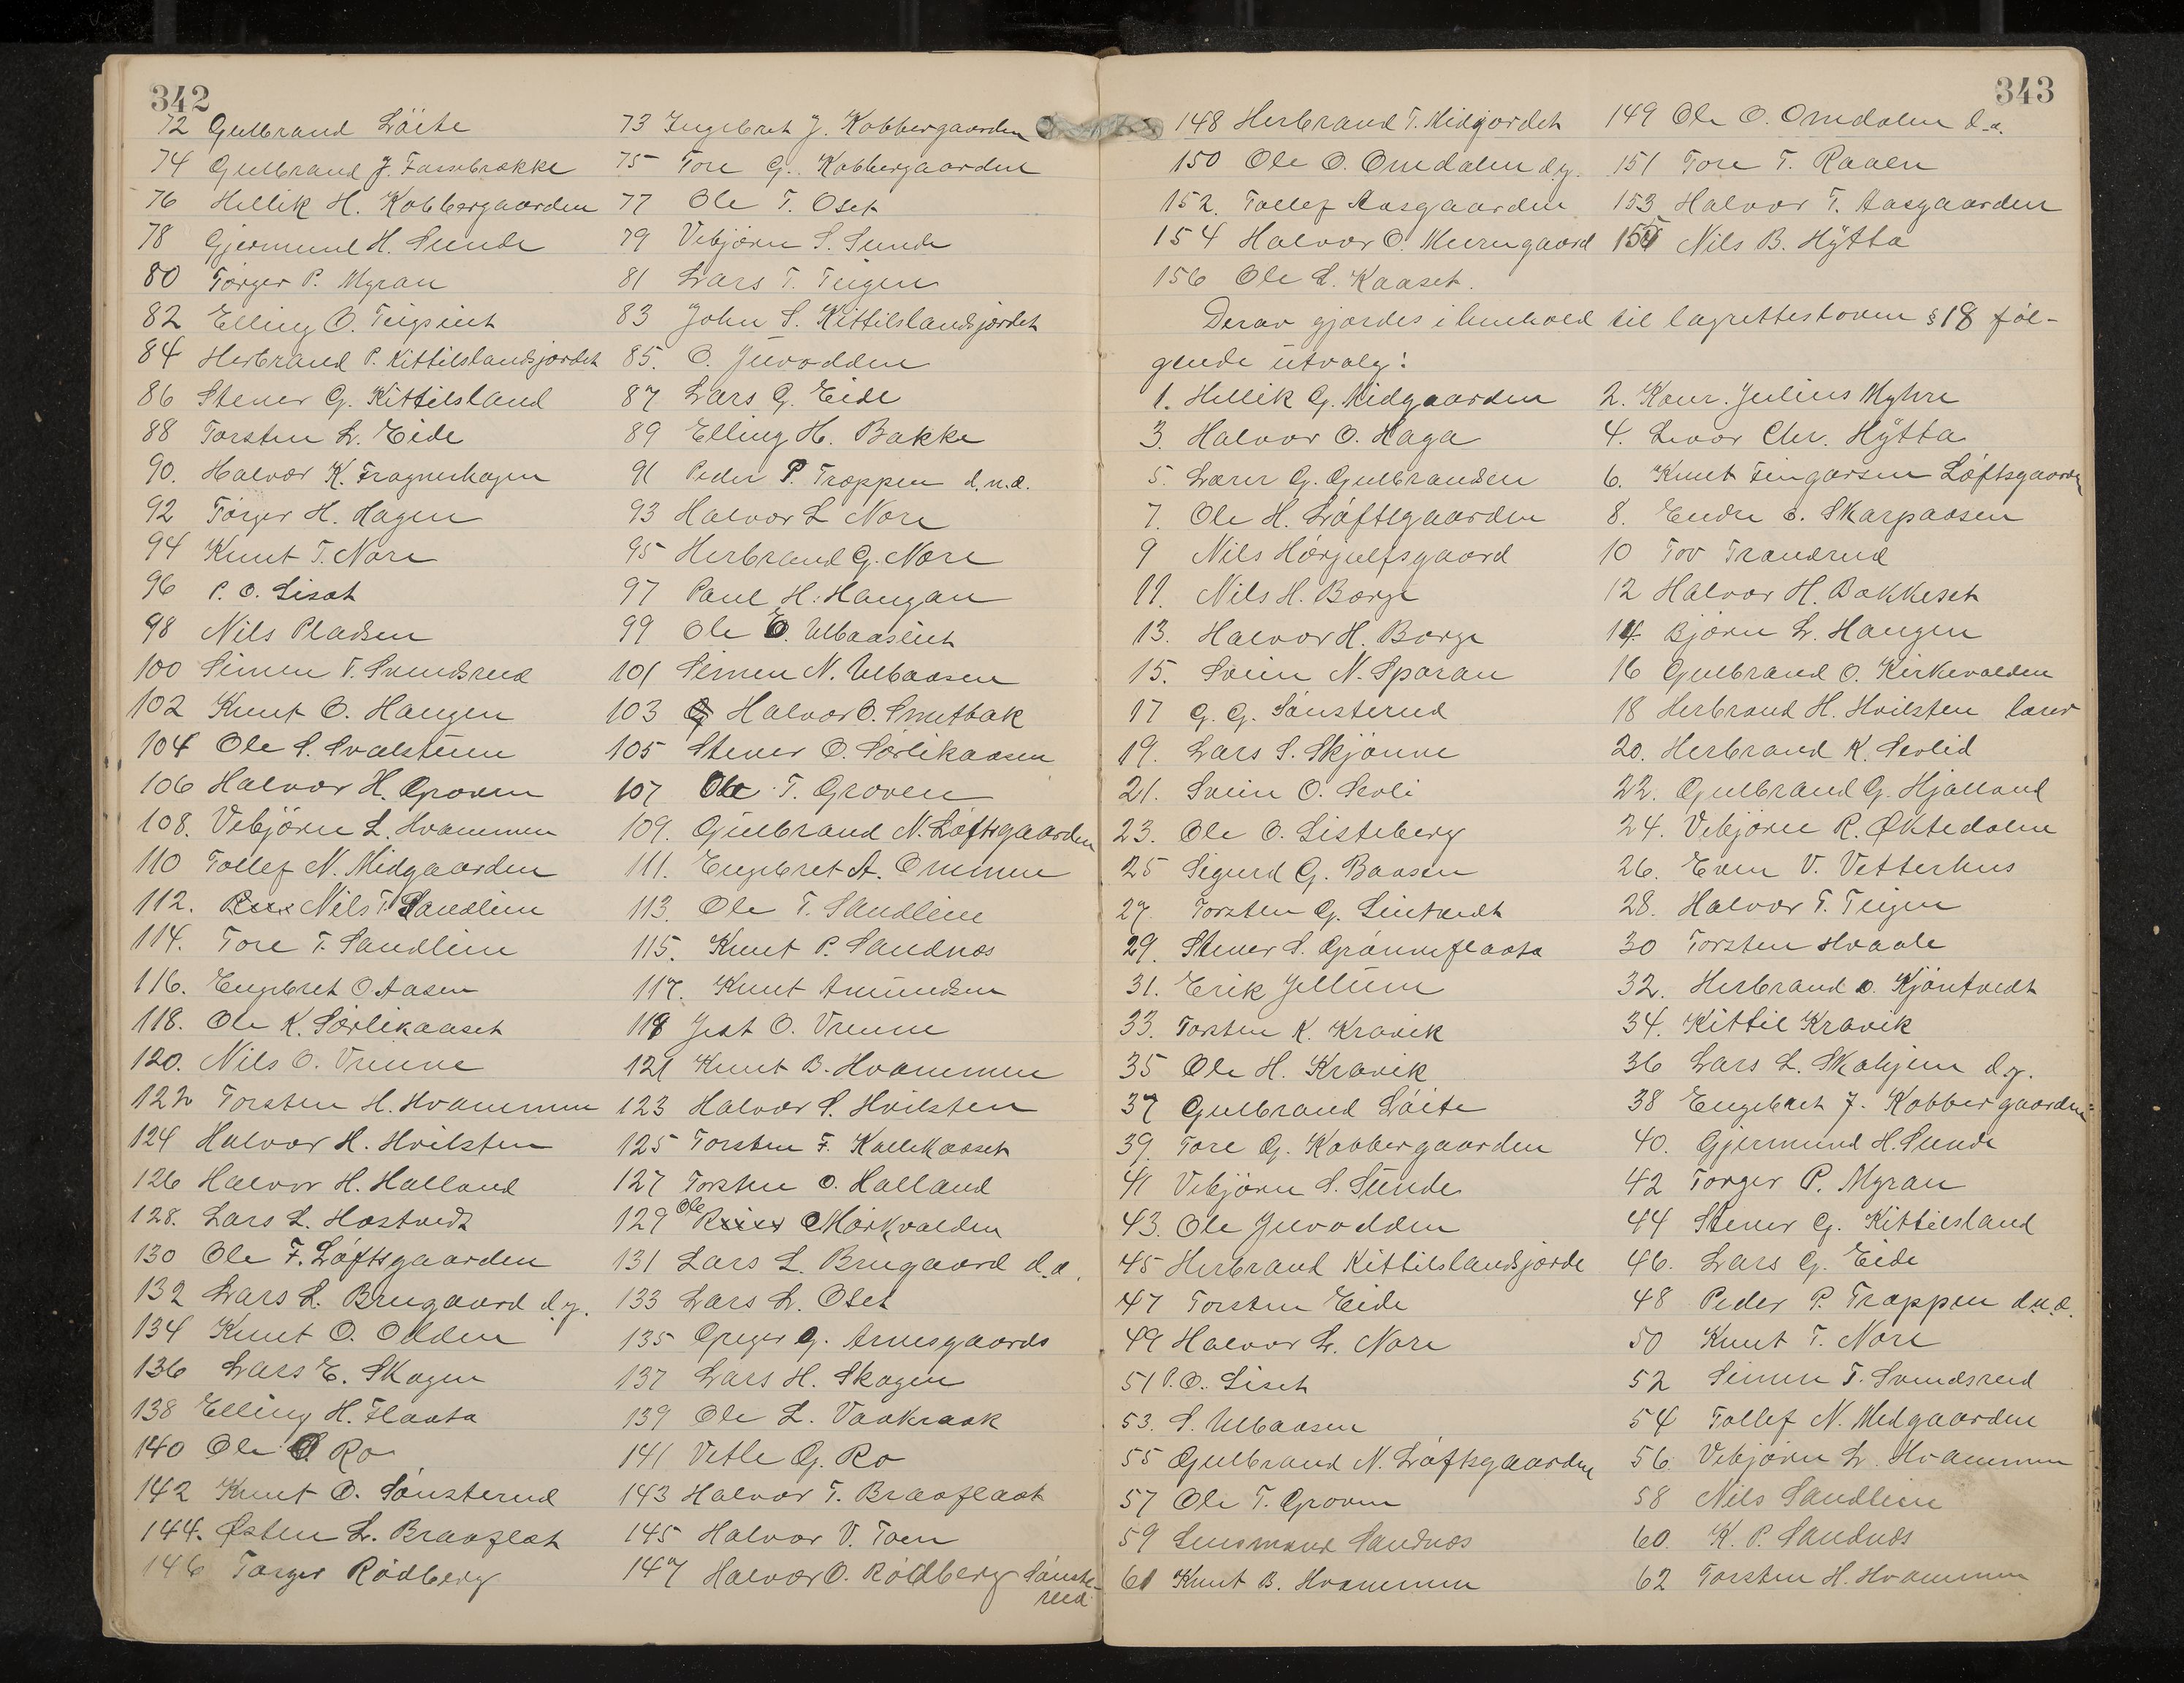 342
72 Gulbrand Löite 73 Ingebret J. Kobbergaarden
74 Gulbrand J. Fassebrække 75 Tore G. Kobbergaarden
76 Hellik H. Kobbergaarden 77 Ole T. Oset
78 Gjermund H. Sunde 79 Vebjørn S. Sunde
80 Torger P. Myran 81 Lars T. Teigen
82 Elling O. 83 John S. Kittilslandsjordet
84 Herbrand P. Kittilslandsjordet 85. O. Juvodden
86 Stener G. Kittilsland 87 Lars G. Eide
88 Torsten L. Eide 89 Elling H. Bakke
90. Halvor K. Fragnerhagen 91 Peder P. Trappen d.n.æ.
92 Torger H. Hagen 93 Halvor L Nore
94 Knut T. Nore 95 Herbrand G. Nore
96 P. O. Liset 97 Paul H. Haugan
98 Nils Pladsen 99 Ole O.
100 Simen T. Svendsrud 101 Simen N. Ulbaasen
102 Knut O. Haugen 103 Halvor O. Smetbak
104 Ole S. 105 Stener O. Sørlikaasen
106 Halvor H. Groven 107 Ole T. Groven
108. Vebjørn L. Hvammen 109. Gulbrand N. Løftsgaarden
110 Tollef N. Midgaarden 111. Engebret A. Ommen
112. Nils T. Sandlien 113. Ole T. Sandlien
114. Tore T. Sandlien 115. Knut P. Sandnæs
116. Engebret O Aasen 117. Knut Amundsen
118. Ole K. Sørlikaaset 119 Jest O. Vrenne
120. Nils O. Vrenne 121 Knut B. Hvammen
122 Torsten H. Hvammen 123 Halvor S. Hvilsten
124 Halvor H. Hvilsten 125 Torsten F. Kallekaaset
126 Halvor H. Halland 127 Torsten O. Halland
128. Lars L. Hostvedt 129 Ole Mørkvolden
130 Ole F. Løftsgaarden 131 Lars L. Brugaard d.æ.
132 Lars L. Brugaard d.y. 133 Lars L. Oset
134 Knut O. Odden 135 Greger G. Arnesgaards
136 Lars E. Skogen 137 Lars H. Skogen
138 Elling H. Flaata 139 Ole L. Vaakraak
140 Ole O Ro 141 Vetle G. Ro
142 Knut O. Sønsterud 143 Halvor T. Braaflaat
144. Østen L. Braaflat 145 Halvor V. Toen
146 Torger Rødberg 147 Halvor O. Rødberg Sønste-
rud
343
148 Herbrand T. Midgordet 149 Ole O. Omdalen d.æ.
150 Ole O. Omdalen d.y. 151 Tore T. Raaen
152. Tollef Aasgaarden 153 Halvor T. Aasgaarden
154 Halvor O. Murugaard 155 Nils B. Hÿtta
156 Ole L. Kaaset.
Derav gjordes i henhold til lagrettesloven § 18 føl-
gende utvalg:
1. Hellik G. Midgaarden 2. Konr. Julius Myhre
3. Halvor O. Haga 4. Levor Chr. Hÿtta
5. Lærer G. Gulbrandsen 6. Knut Fingarsen Løftsgaarden
7. Ole H. Løftsgaarden 8. Endre O. Skarpaasen
9 Nils Hørjulfsgaard 10 Tov Trandrud
11. Nils H. Borge 12 Halvor H. Bakkeset
13. Halvor H. Borge 14 Bjørn L. Haugen
15. Svein N. Sporan 16 Gulbrand O. Kirkevolden
17 G. G. Sønsterud 18 Herbrand H. Hvilsten lærer
19. Lars S. Skjønne 20. Herbrand K. Sevlid
21. Svein O. Sevli 22. Gulbrand G. Hjalland
23. Ole O. Listeberg 24. Vebjørn R. Øktedalen
25 Sigurd G. Baasen 26. Even V. Vetterhus
27. Torsten G. 28. Halvor T. Teigen
29. Stener S. Grønneflaata 30 Torsten Hvaale
31. Erik Jellum 32. Herbrand O. Kjøntvedt
33. Torsten K. Kravik 34. Kittil Kravik
35 Ole H. Kravik 36 Lars L. Skahjem d.y.
37 Gulbrand Løite 38 Engebret J. Kobbergaarden
39. Tore G. Kobbergaarden 40. Gjermund H. Sunde
41 Vebjørn S. Sunde 42 Torger P. Myran
43. Ole Juvodden 44 Stener G. Kittilsland
45 Herbrand Kittilslandsjorde 46. Lars G. Eide
47 Torsten Eide 48 Peder P. Trappen d.n.æ.
49 Halvor L. Nore 50 Knut T. Nore
51 P.O. Liset 52 Simen T. Svendsrud
53. S. Ulbaasen 54 Tollef N. Medgaarden
55 Gulbrand N. Løftsgaarden 56 Vebjørn L. Hvammen
57 Ole T. Groven 58 Nils Sandlien
59 Lensmand Sandnæs 60. K. P. Sandnæs
61 Knut B. Hvammen 62 Torsten H. Hvammen